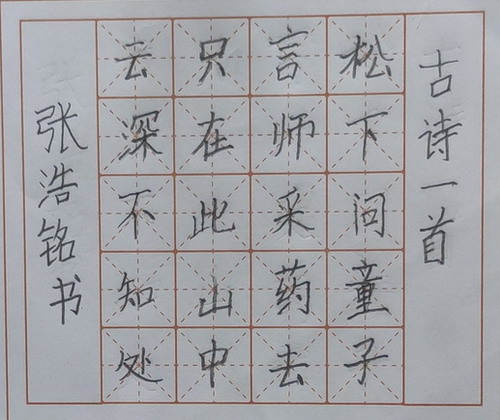 古诗一首
松下问童子
言师采药去
只在此山中
云深不知处
张浩铭书